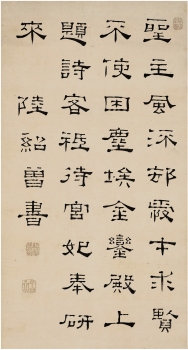 聖主風流愛才求賢
不使困塵埃金鑾殿上
題詩客祇待宮妃奉研
來 陸紹曾書